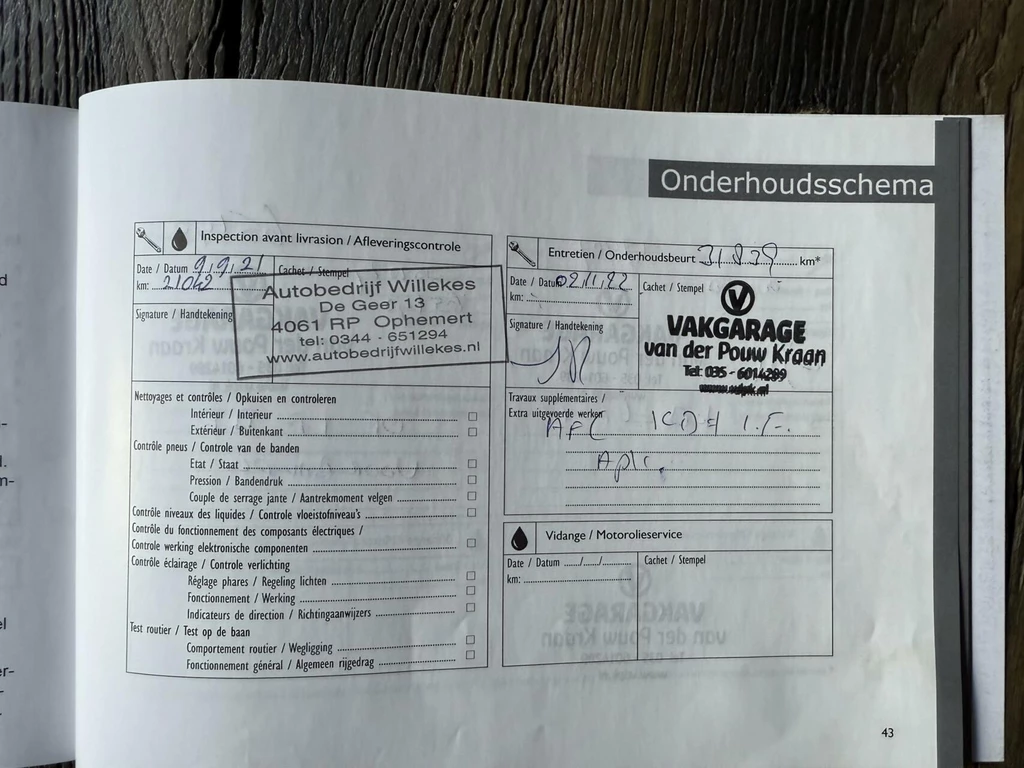 Onderhoudsschema
Inspection avant livrasion / Afleveringscontrole
Date / Datum 9/9/21
km: 21042
Cachet / Stempel
Signature / Handtekening
Autobedrijf Willekes
De Geer 13
4061 RP Ophemert
tel: 0344 - 651294
www.autobedrijfwillekes.nl
Nettoyages et contrôles / Opkuisen en controleren
Intérieur / Interieur
Extérieur / Buitenkant
Contrôle pneus / Controle van de banden
Etat / Staat
Pression / Bandendruk
Couple de serrage jante / Aantrekmoment velgen
Contrôle niveaux des liquides / Controle vloeistofniveau's
Contrôle du fonctionnement des composants électriques /
Controle werking elektronische componenten
Contrôle éclairage / Controle verlichting
Réglage phares / Regeling lichten
Fonctionnement / Werking
Indicateurs de direction / Richtingaanwijzers
Test routier / Test op de baan
Comportement routier / Wegligging
Fonctionnement général / Algemeen rijgedrag
Entretien / Onderhoudsbeurt 31.839 km*
Date / Datum 02/11/22
km:
Cachet / Stempel
Signature / Handtekening
VAKGARAGE
van der Pouw Kraan
Tel: 035 - 6014289
www.vdpk.nl
Travaux supplémentaires /
Extra uitgevoerde werken
Vidange / Motorolieservice
Date / Datum ....../....../......
km:
Cachet / Stempel
43